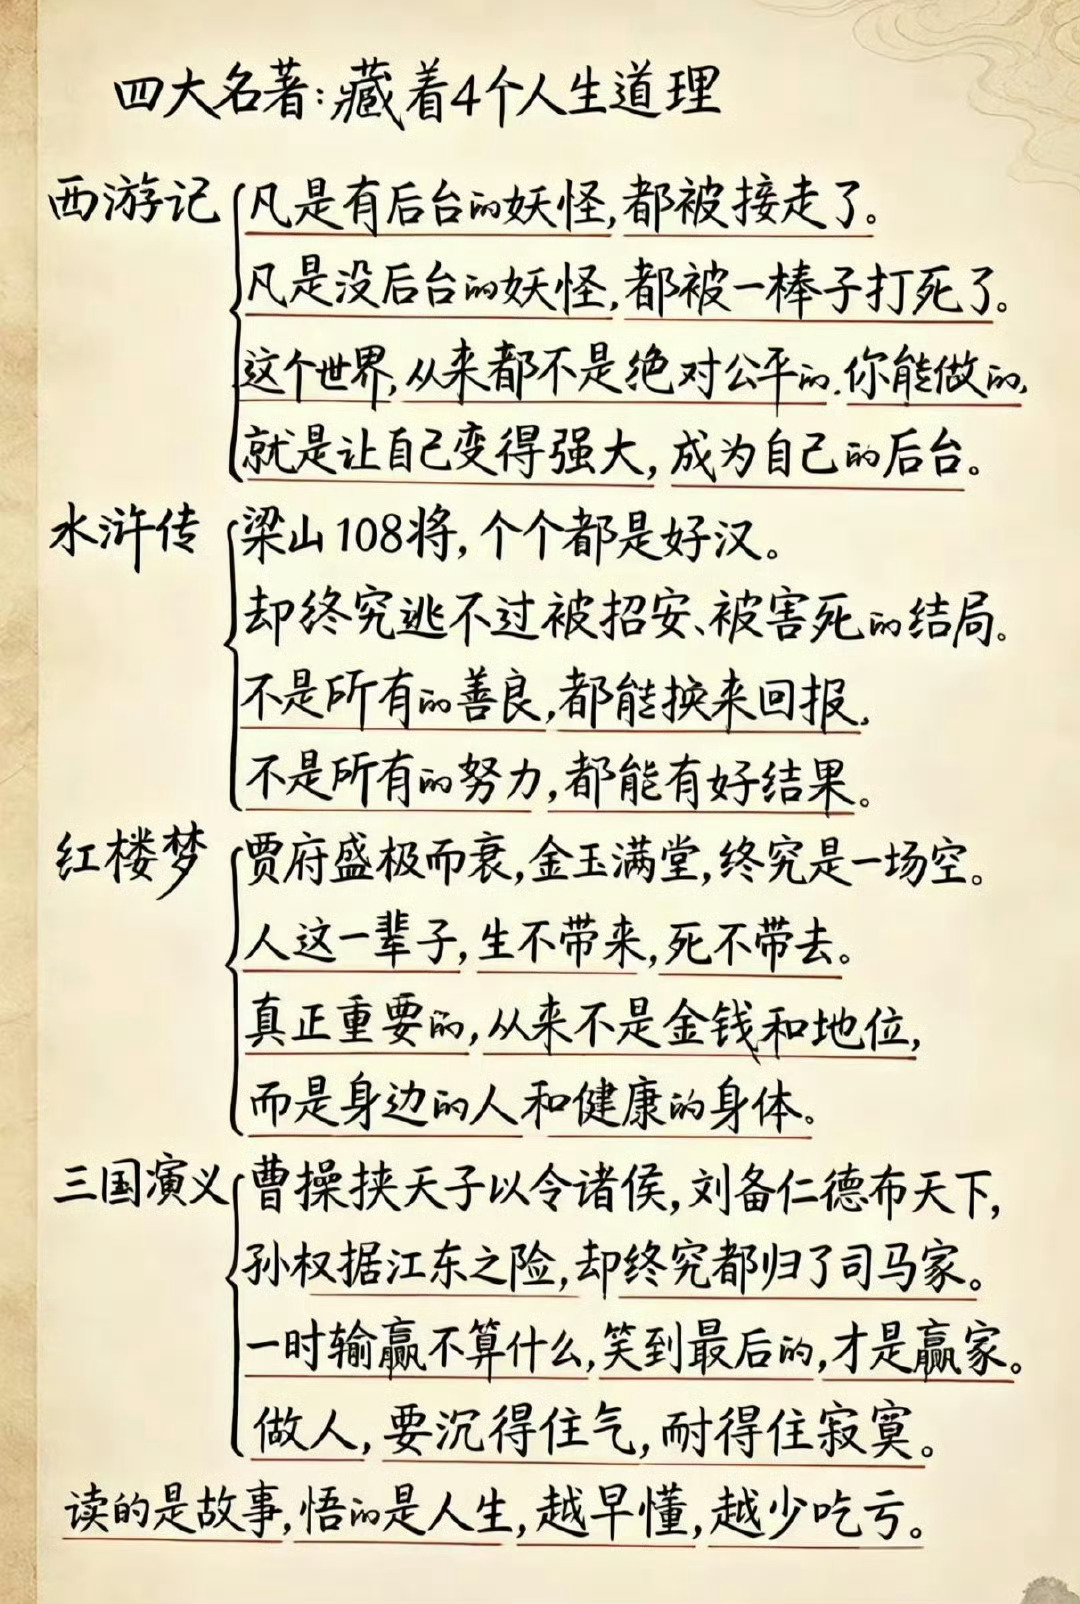 四大名著:藏着4个人生道理
西游记 凡是有后台的妖怪,都被接走了。
凡是没后台的妖怪,都被一棒子打死了。
这个世界,从来都不是绝对公平的.你能做的,
就是让自己变得强大,成为自己的后台。
水浒传 梁山108将,个个都是好汉。
却终究逃不过被招安、被害死的结局。
不是所有的善良,都能换来回报,
不是所有的努力,都能有好结果。
红楼梦 贾府盛极而衰,金玉满堂,终究是一场空。
人这一辈子,生不带来,死不带去。
真正重要的,从来不是金钱和地位,
而是身边的人和健康的身体。
三国演义 曹操挟天子以令诸侯,刘备仁德布天下,
孙权据江东之险,却终究都归了司马家。
一时输赢不算什么,笑到最后的,才是赢家。
做人,要沉得住气,耐得住寂寞。
读的是故事,悟的是人生,越早懂,越少吃亏。